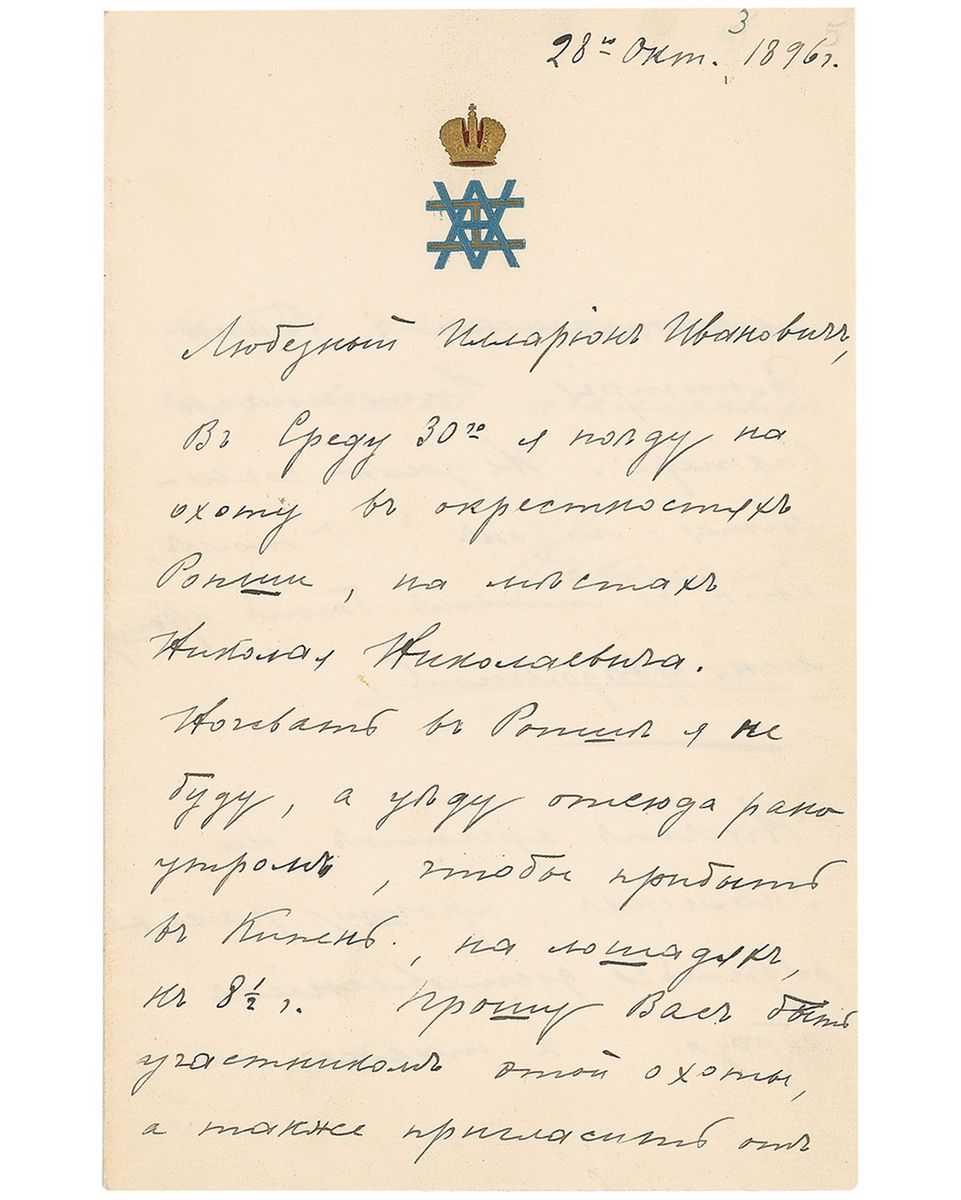 3 5
28го Окт. 1896 г.
Любезный Илларіонъ Ивановичъ,
Въ Среду 30го я поѣду на
охоту въ окрестностяхъ
Ропши, на мѣстахъ
Николая Николаевича.
Ночевать въ Ропшѣ я не
буду, а уѣду отсюда рано
утромъ, чтобы прибыть
въ Кипень, на лошадяхъ,
къ 8½ г. Прошу Васъ быть
участникомъ этой охоты,
а также пригласить отъ